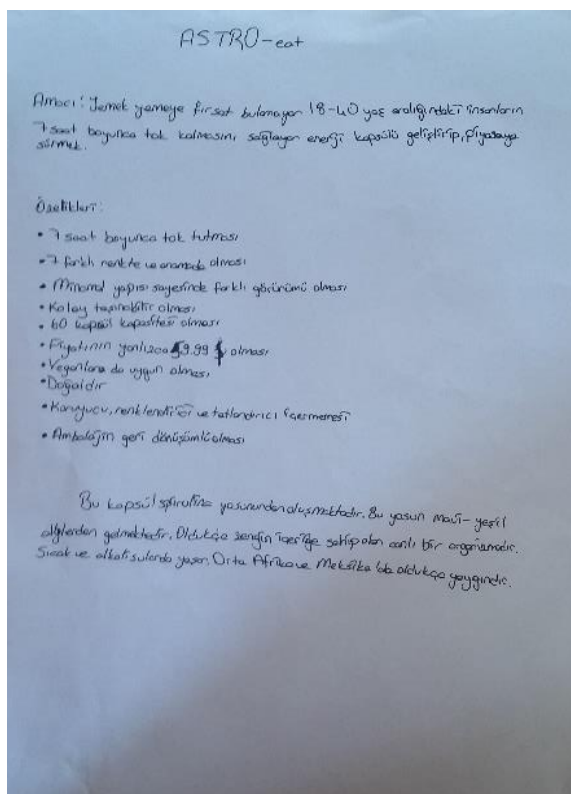 ASTRO-eat
Amacı: Yemek yemeye fırsat bulamayan 18-40 yaş aralığındaki insanların
7 saat boyunca tok kalmasını sağlayan enerji kapsülü geliştirip, piyasaya
sürmek.
Özelikleri:
• 7 saat boyunca tok tutması
• 7 farklı renkte ve aromada olması
• Minimal yapısı sayesinde farklı görünümü olması
• Kolay taşınabilir olması
• 60 kapsül kapasitesi olması
• Fiyatının yanlızca 59.99 $ olması
• Veganlara da uygun olması
• Doğaldır
• Koruyucu, renklendirici ve tatlandırıcı içermemesi
• Ambalajın geri dönüşümlü olması
Bu kapsül spirulina yosunundan oluşmaktadır. Bu yosun mavi-yeşil
alglerden gelmektedir. Oldukça zengin içeriğe sahip olan canlı bir organizmadır.
Sıcak ve alkali sularda yaşar. Orta Afrika ve Meksika'da oldukça yaygındır.